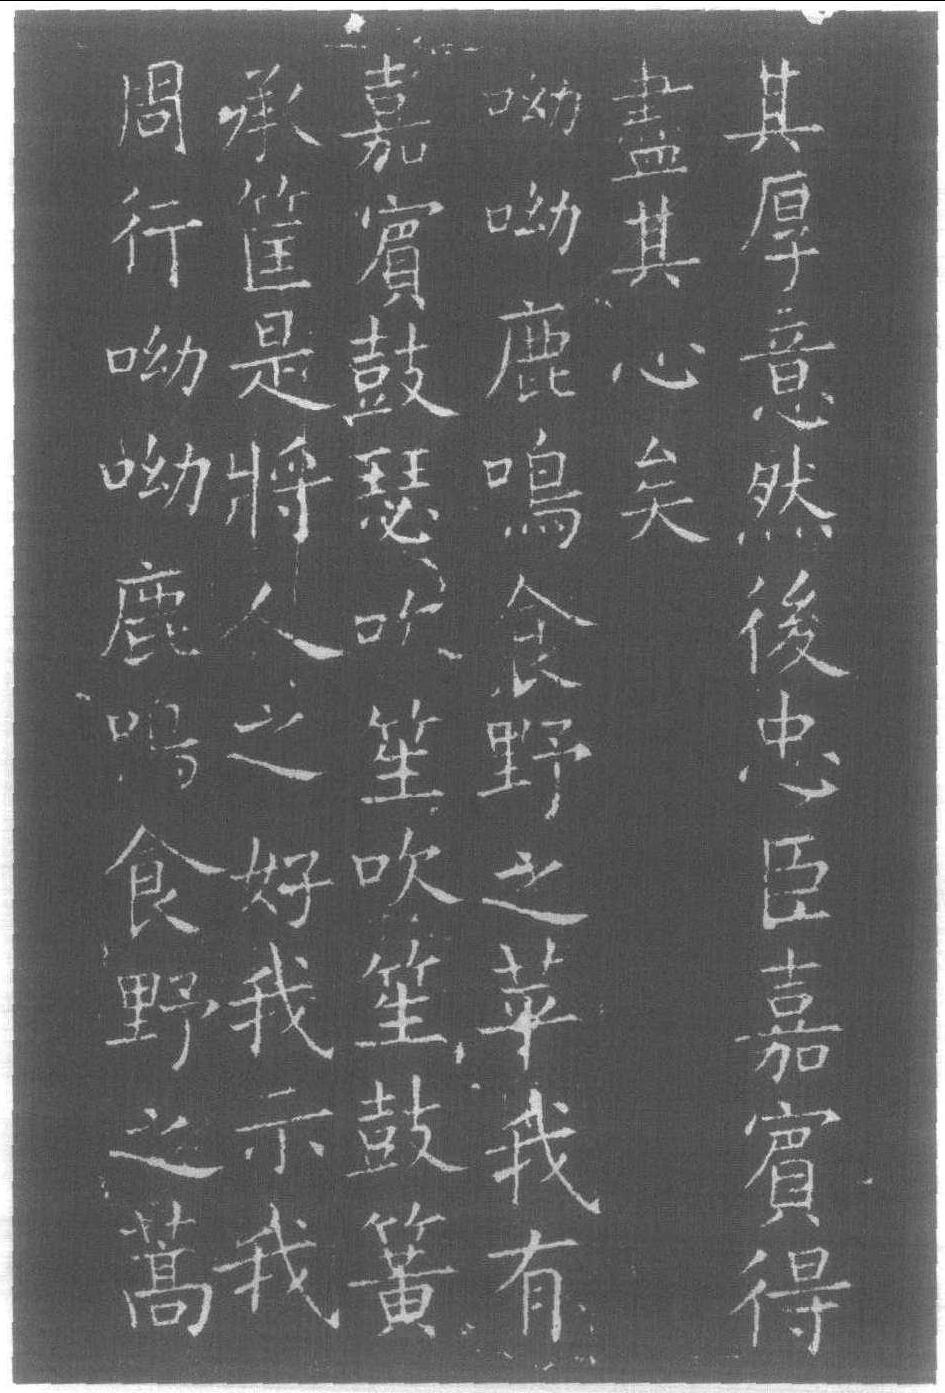 其厚意然後忠臣嘉賓得
盡其心矣
呦呦鹿鳴食野之苹我有
嘉賓鼓瑟吹笙吹笙鼓簧
承筐是將人之好我示我
周行呦呦鹿鳴食野之蒿